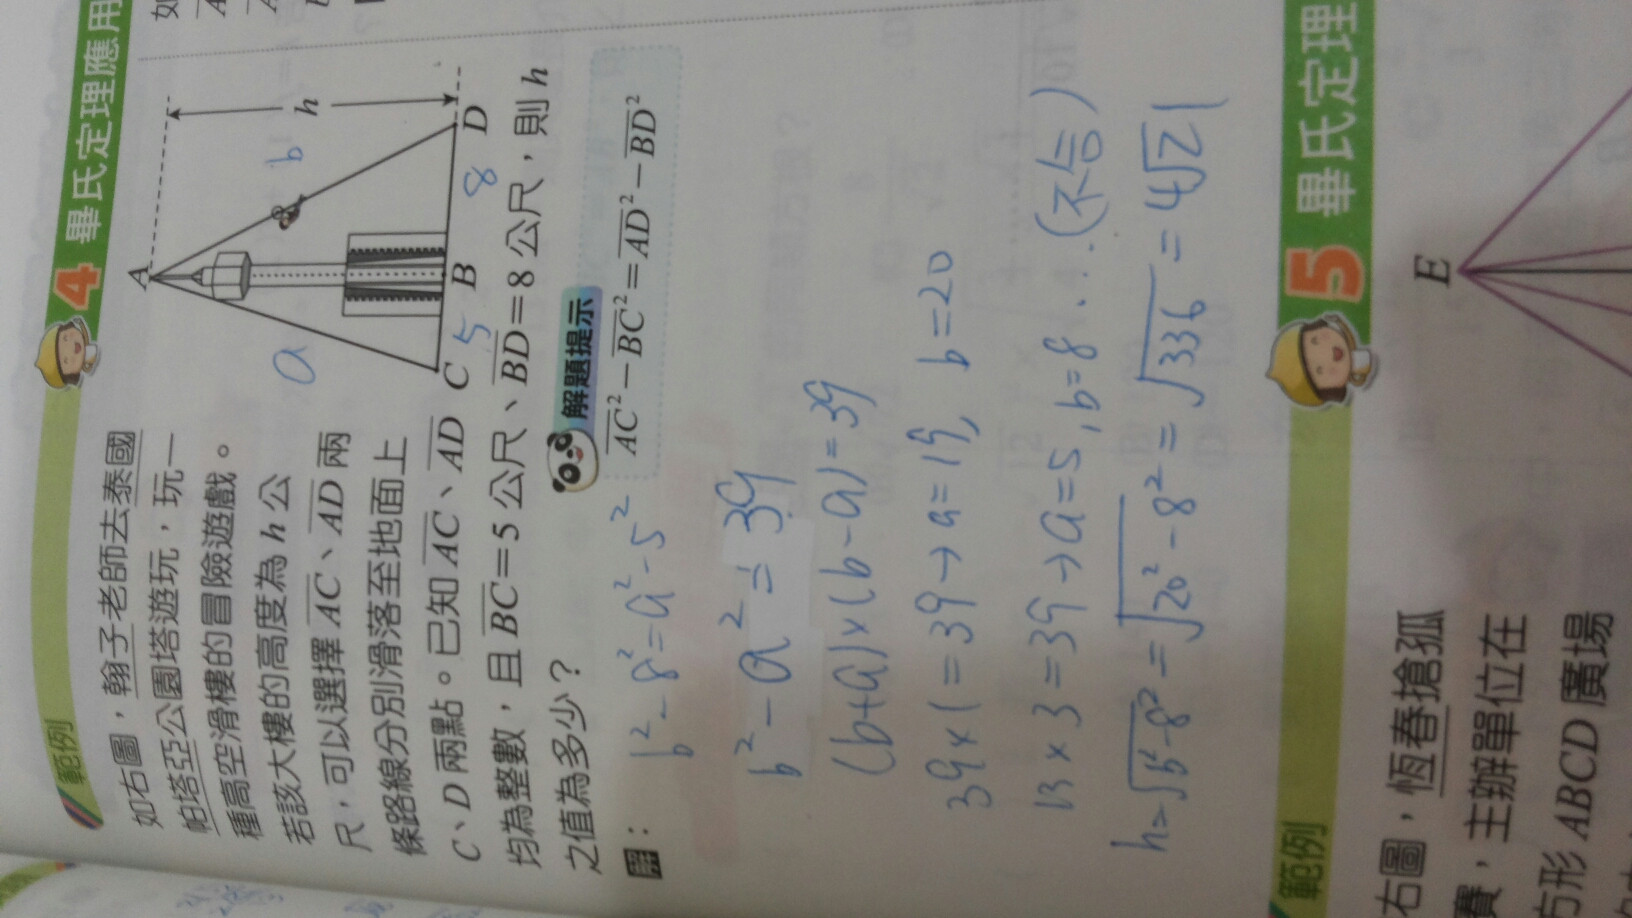 範例 4 畢氏定理應用
如右圖，翰子老師去泰國
帕塔亞公園塔遊玩，玩一
種高空滑樓的冒險遊戲。
若該大樓的高度為 h 公
尺，可以選擇 AC、AD 兩
條路線分別滑落至地面上
C、D 兩點。已知 AC、AD
均為整數，且 BC=5 公尺、BD=8 公尺，則 h
之值為多少？
A
a
b
h
C 5 B 8 D
解題提示
AC²−BC²=AD²−BD²
解：
b²-8²=a²-5²
b²-a²=39
(b+a)×(b-a)=39
39×1=39→a=19, b=20
13×3=39→a=5, b=8...(不合)
h=√b²-8²=√20²-8²=√336=4√21
範例 5 畢氏定理
右圖，恆春搶孤
賽，主辦單位在
方形 ABCD 廣場
E